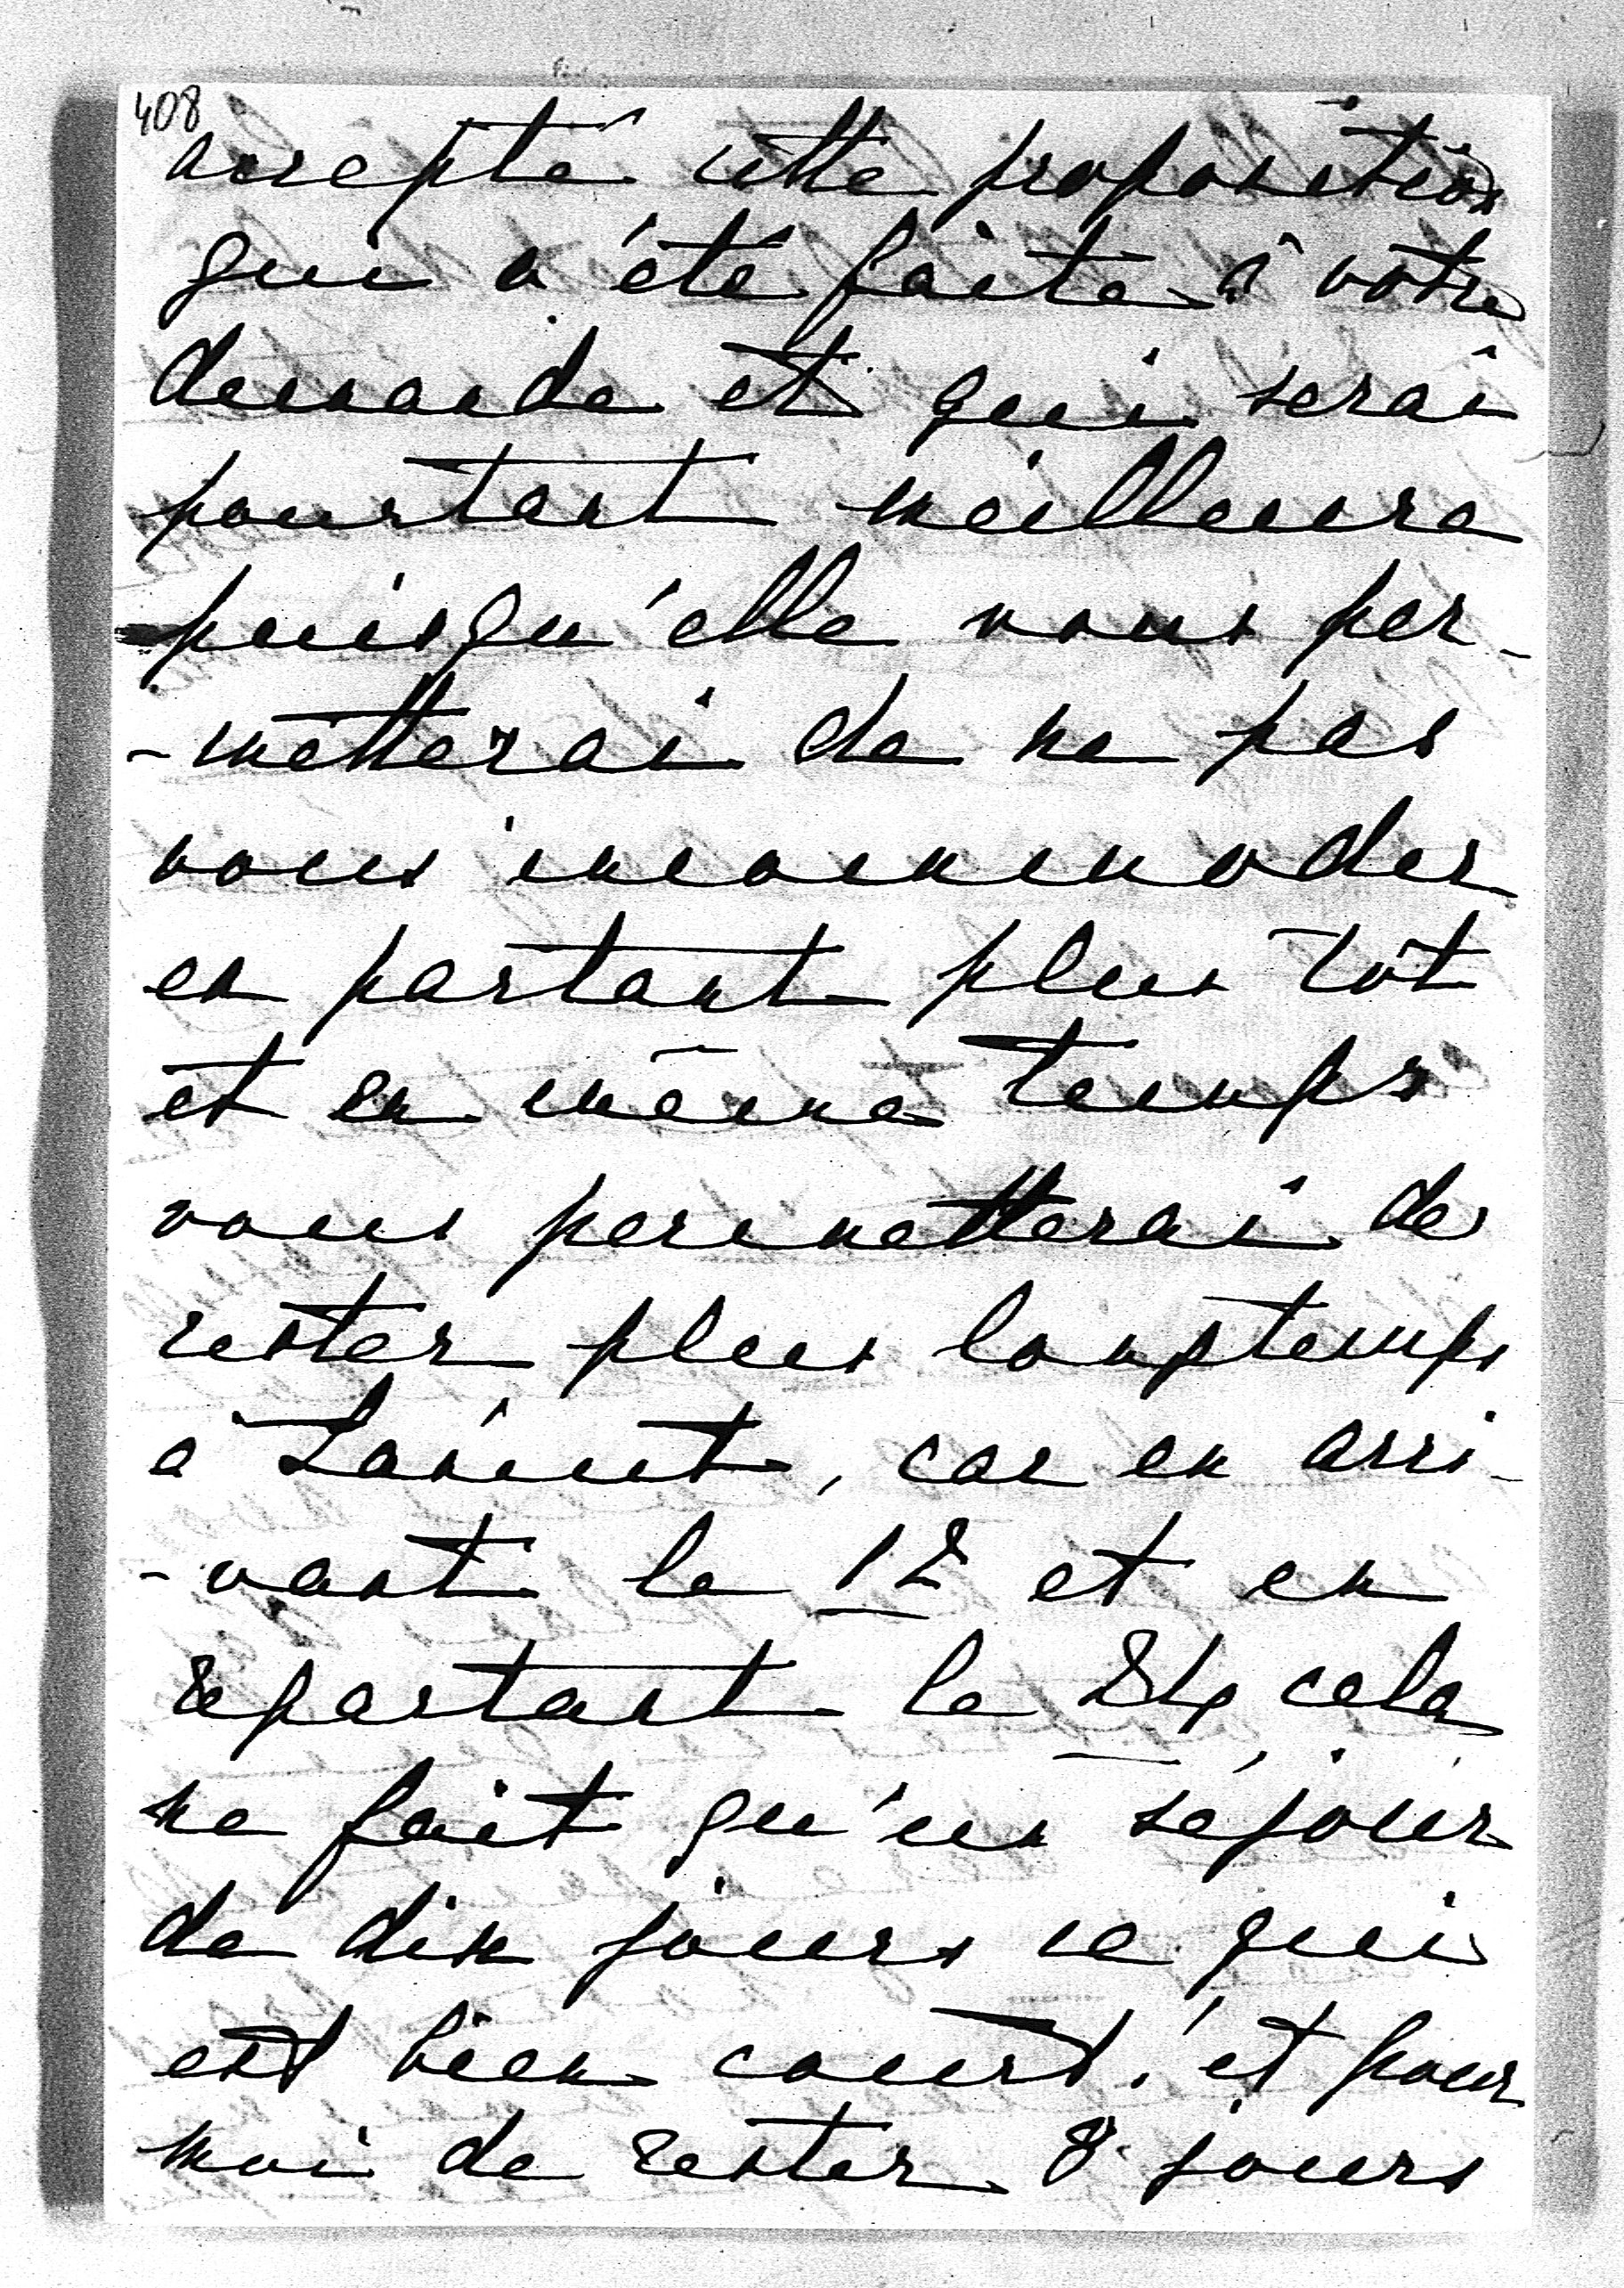 408
accepté cette proposition
qui a été faite à votre
demande et qui serai
pourtant meilleure
puisqu'elle vous per-
-metterai de ne pas
vous incommoder
en partant plus tôt
et en même temps
vous permetterai de
rester plus longtemps
a, car en arri-
-vant le 12 et en
repartant le 24 cela
ne fait qu'un séjour
de dix jours ce qui
est bien court! et pour
moi de rester 8 jours